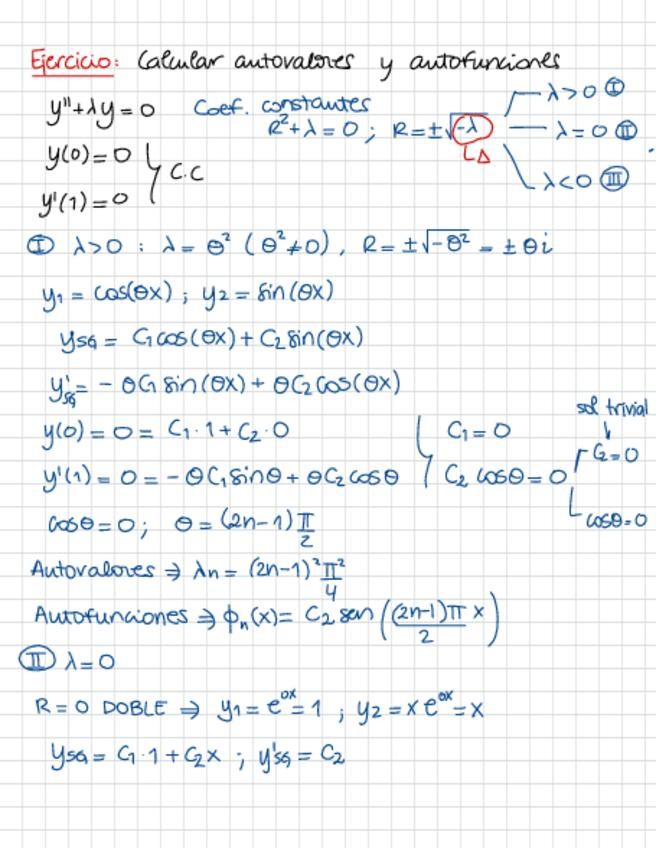 Ejercicio: Calcular autovalores y autofunciones
y'' + λy = 0 Coef. constantes
R² + λ = 0 ; R = ±√-λ
Δ
λ > 0 Ⓘ
λ = 0 Ⓘⓘ
λ < 0 Ⓘⓘⓘ
y(0) = 0
y'(1) = 0
C.C
Ⓘ λ > 0 : λ = θ² (θ² ≠ 0), R = ±√-θ² = ±θi
y1 = cos(θx) ; y2 = sin(θx)
ySG = C1 cos(θx) + C2 sin(θx)
y'SG = - θC1 sin(θx) + θC2 cos(θx)
y(0) = 0 = C1·1 + C2·0 C1 = 0
y'(1) = 0 = -θC1 sinθ + θC2 cosθ C2 cosθ = 0
sol trivial
C2 = 0
cosθ = 0
cosθ = 0 ; θ = (2n-1) π/2
Autovalores ⇒ λn = (2n-1)² π²/4
Autofunciones ⇒ ϕn(x) = C2 sen((2n-1)π/2 x)
II λ = 0
R = 0 DOBLE ⇒ y1 = e^0x = 1 ; y2 = x e^0x = x
ySG = C1·1 + C2x ; y'SG = C2